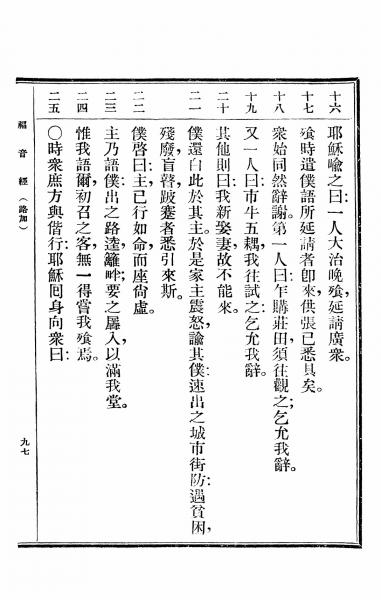 十六 耶穌喻之曰:一人大治晚飧,延請廣衆。
十七 飧時遣僕語所延請者卽來,供張已悉具矣。
十八 衆始同然辭謝。第一人曰:乍購莊田,須往觀之;乞允我辭。
十九 又一人曰:市牛五耦,我往試之;乞允我辭。
二十 其他則曰:我新娶妻,故不能來。
二一 僕還白此於其主。於是家主震怒,諭其僕:速出之城市街坊:遇貧困,
殘廢,盲瞽,跛蹇者,悉引來斯。
二二 僕啓曰:主,已行如命,而座尙虛。
二三 主乃語僕:出之路逵,籬畔;要之羼入,以滿我堂。
二四 惟我語爾,初召之客,無一得嘗我飧焉。
二五 〇時衆庶方與偕行:耶穌囘身向衆曰:
福音經(路加)
九七